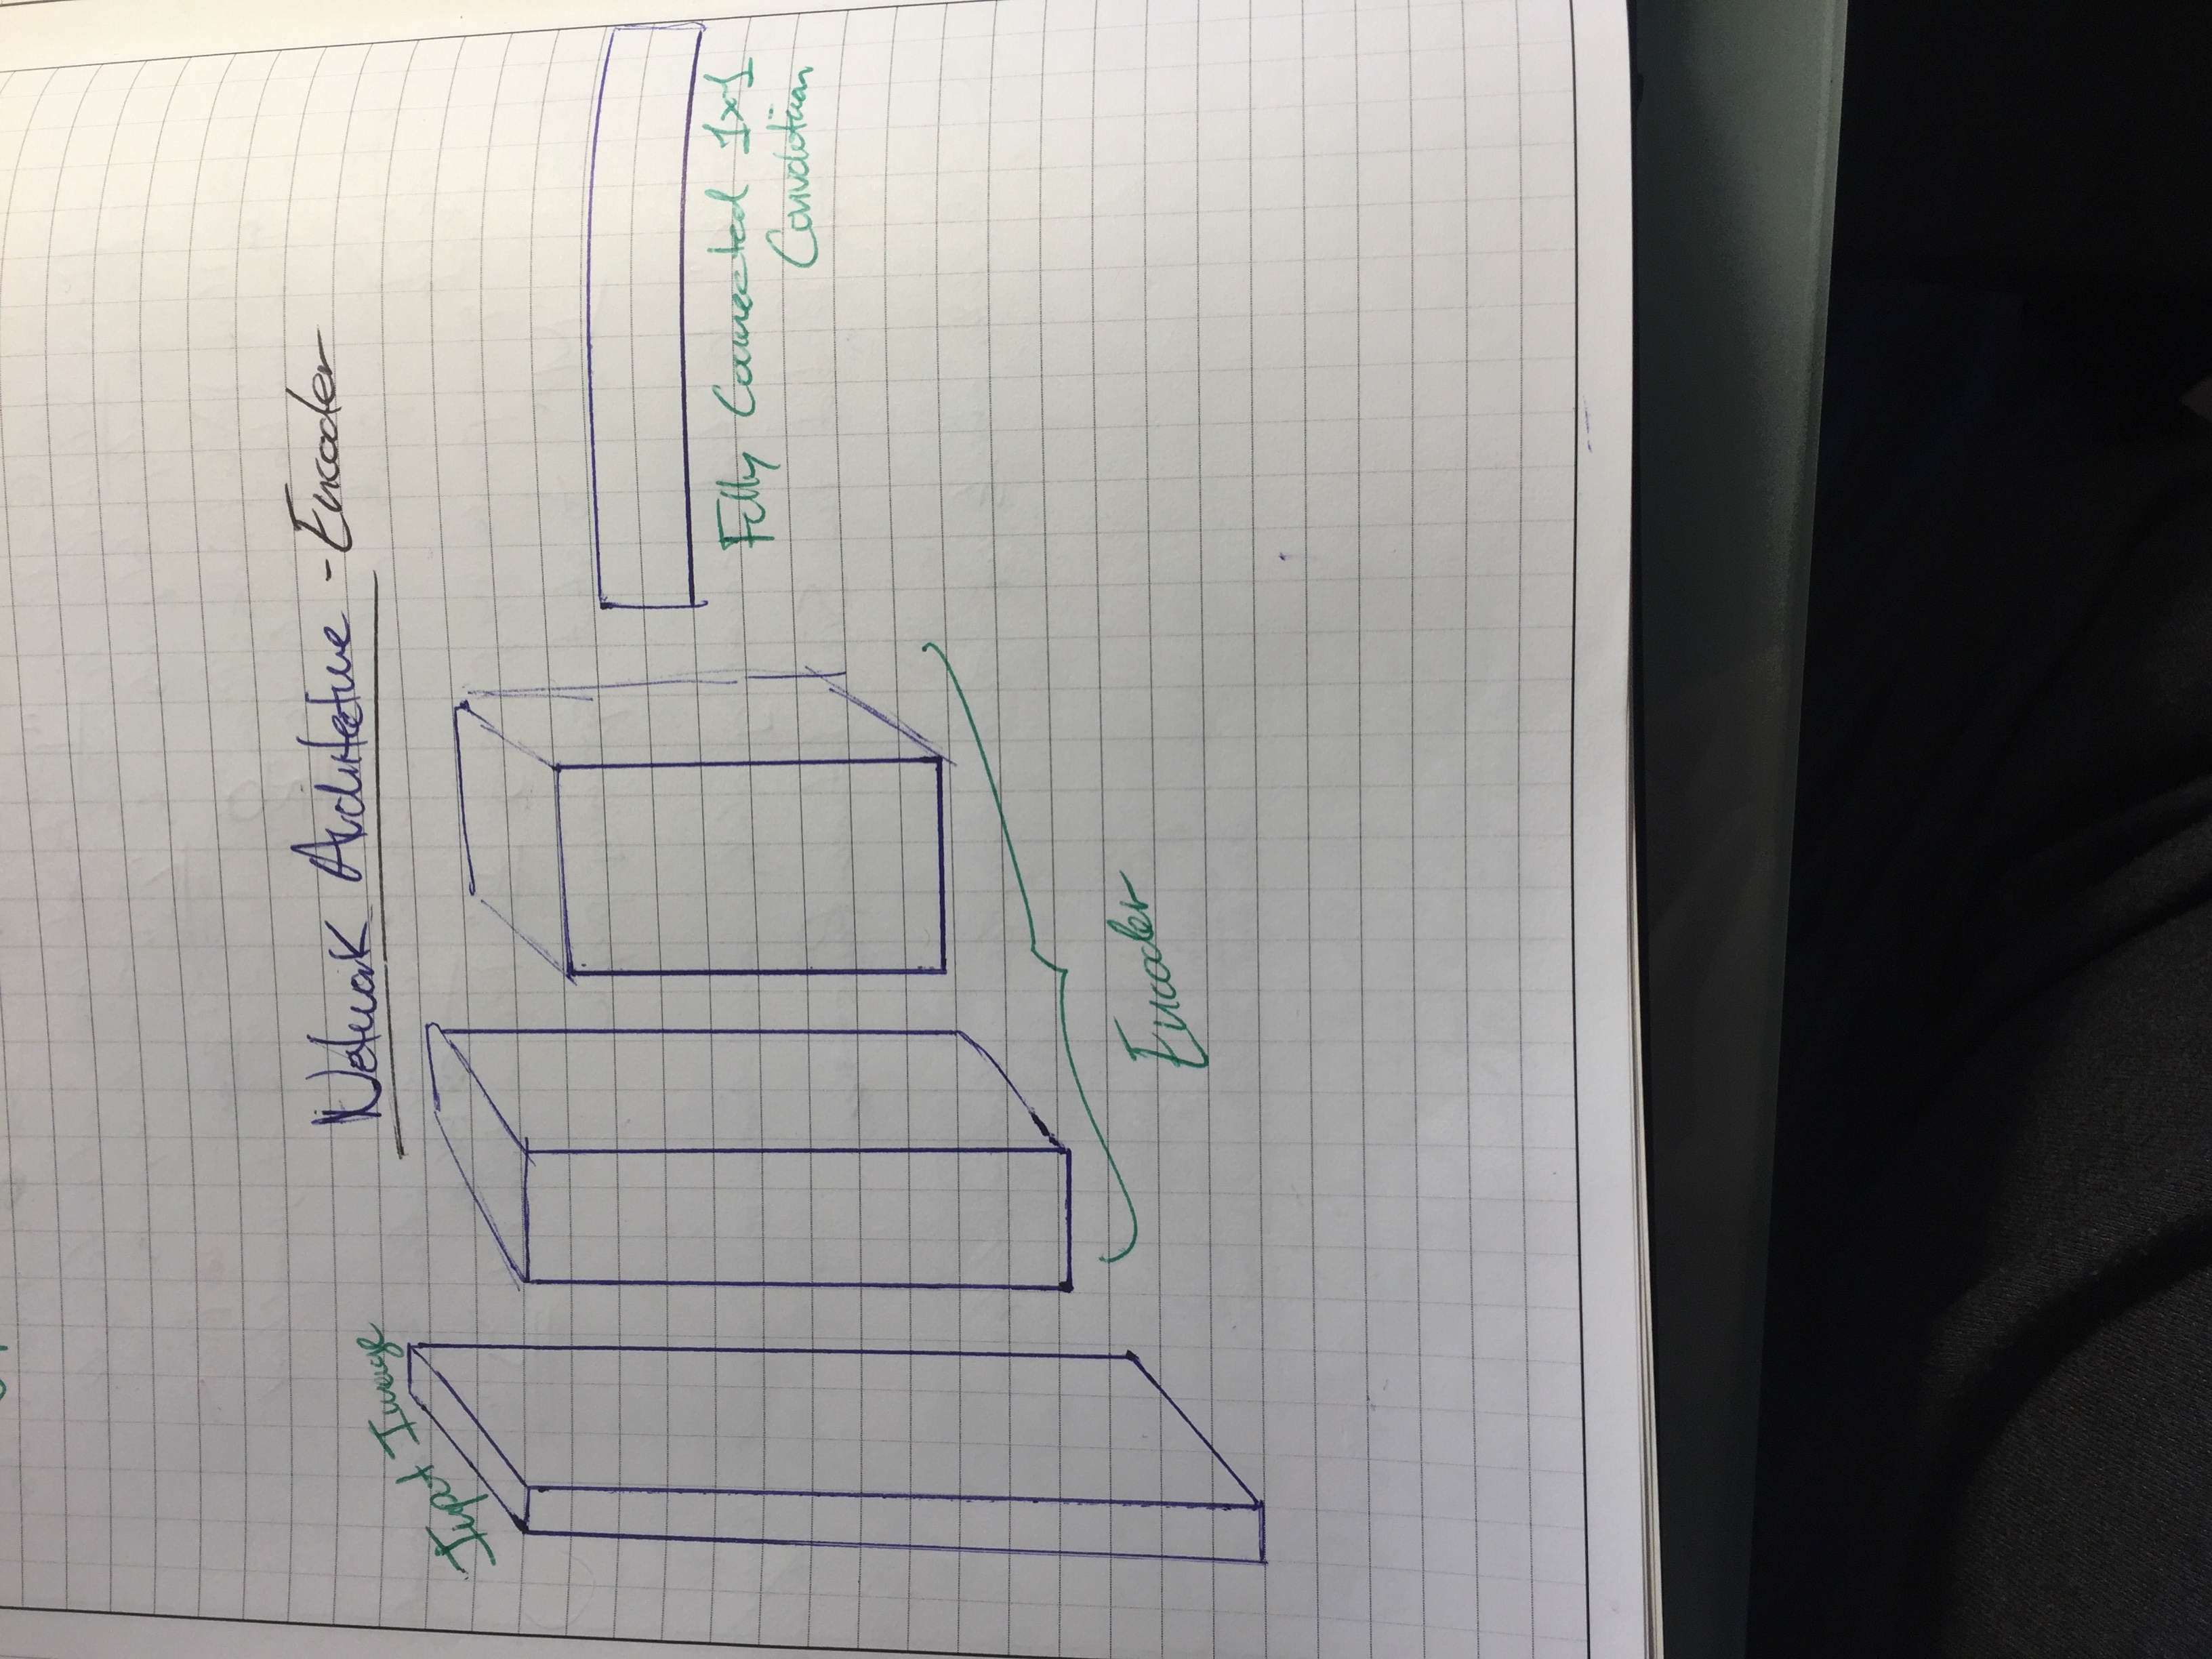 Network Architecture - Encoder
Input Image
Fully Connected 1x1
Convolution
Encoder